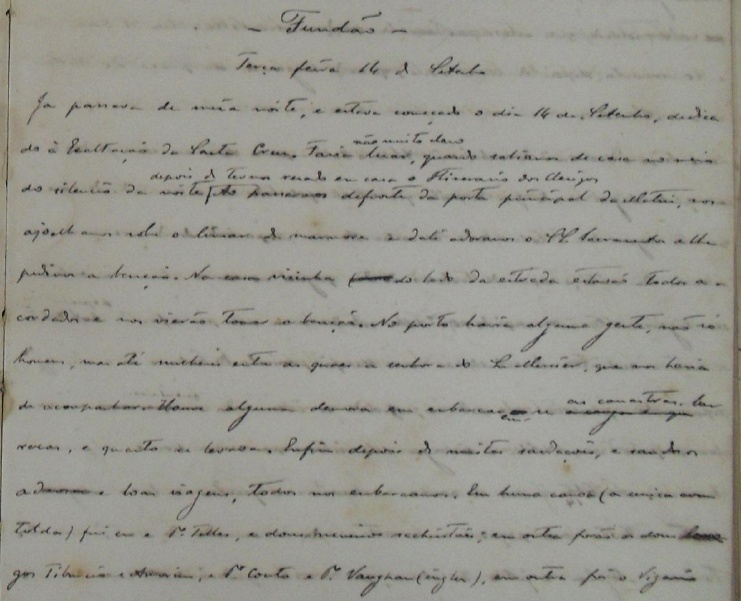 - Fundão -
Terça feira 14 de Setembro
Ja passava de meia noite, e estava começado o dia 14 de Setembro, dedica
do á Exaltação da Santa Cruz. Fazia luar, não muito claro quando sahimos de casa no meio
do silencio da noite, depois de termos rezado em casa o Itinerario dos Clerigos
Ao passarmos defronte da porta principal da Matriz, nos
ajoelhamos sobre o limiar de marmore e dali adoramos o SS. Sacramento e lhe
pedimos a benção. Na casa visinha do lado da estrada estavão todos a
cordados e nos vierão tomar a benção. No porto havia alguma gente, não só
homens, mas até mulheres entre as quaes a senhora do que nos havia
de acompanhar. Houve alguma demora em as canastras,
e quanto se levava. Enfim depois de muitas saudações, e saudosos
e boas viagens, todos nos embarcamos. Em huma canoa (a unica com
tolda) fui eu e P.e Telles, e dous meninos sachristães; em outra forão os dous
Tiburcio e e P.e Couto e P.e Vaughan (inglez), em outra foi o Vigario